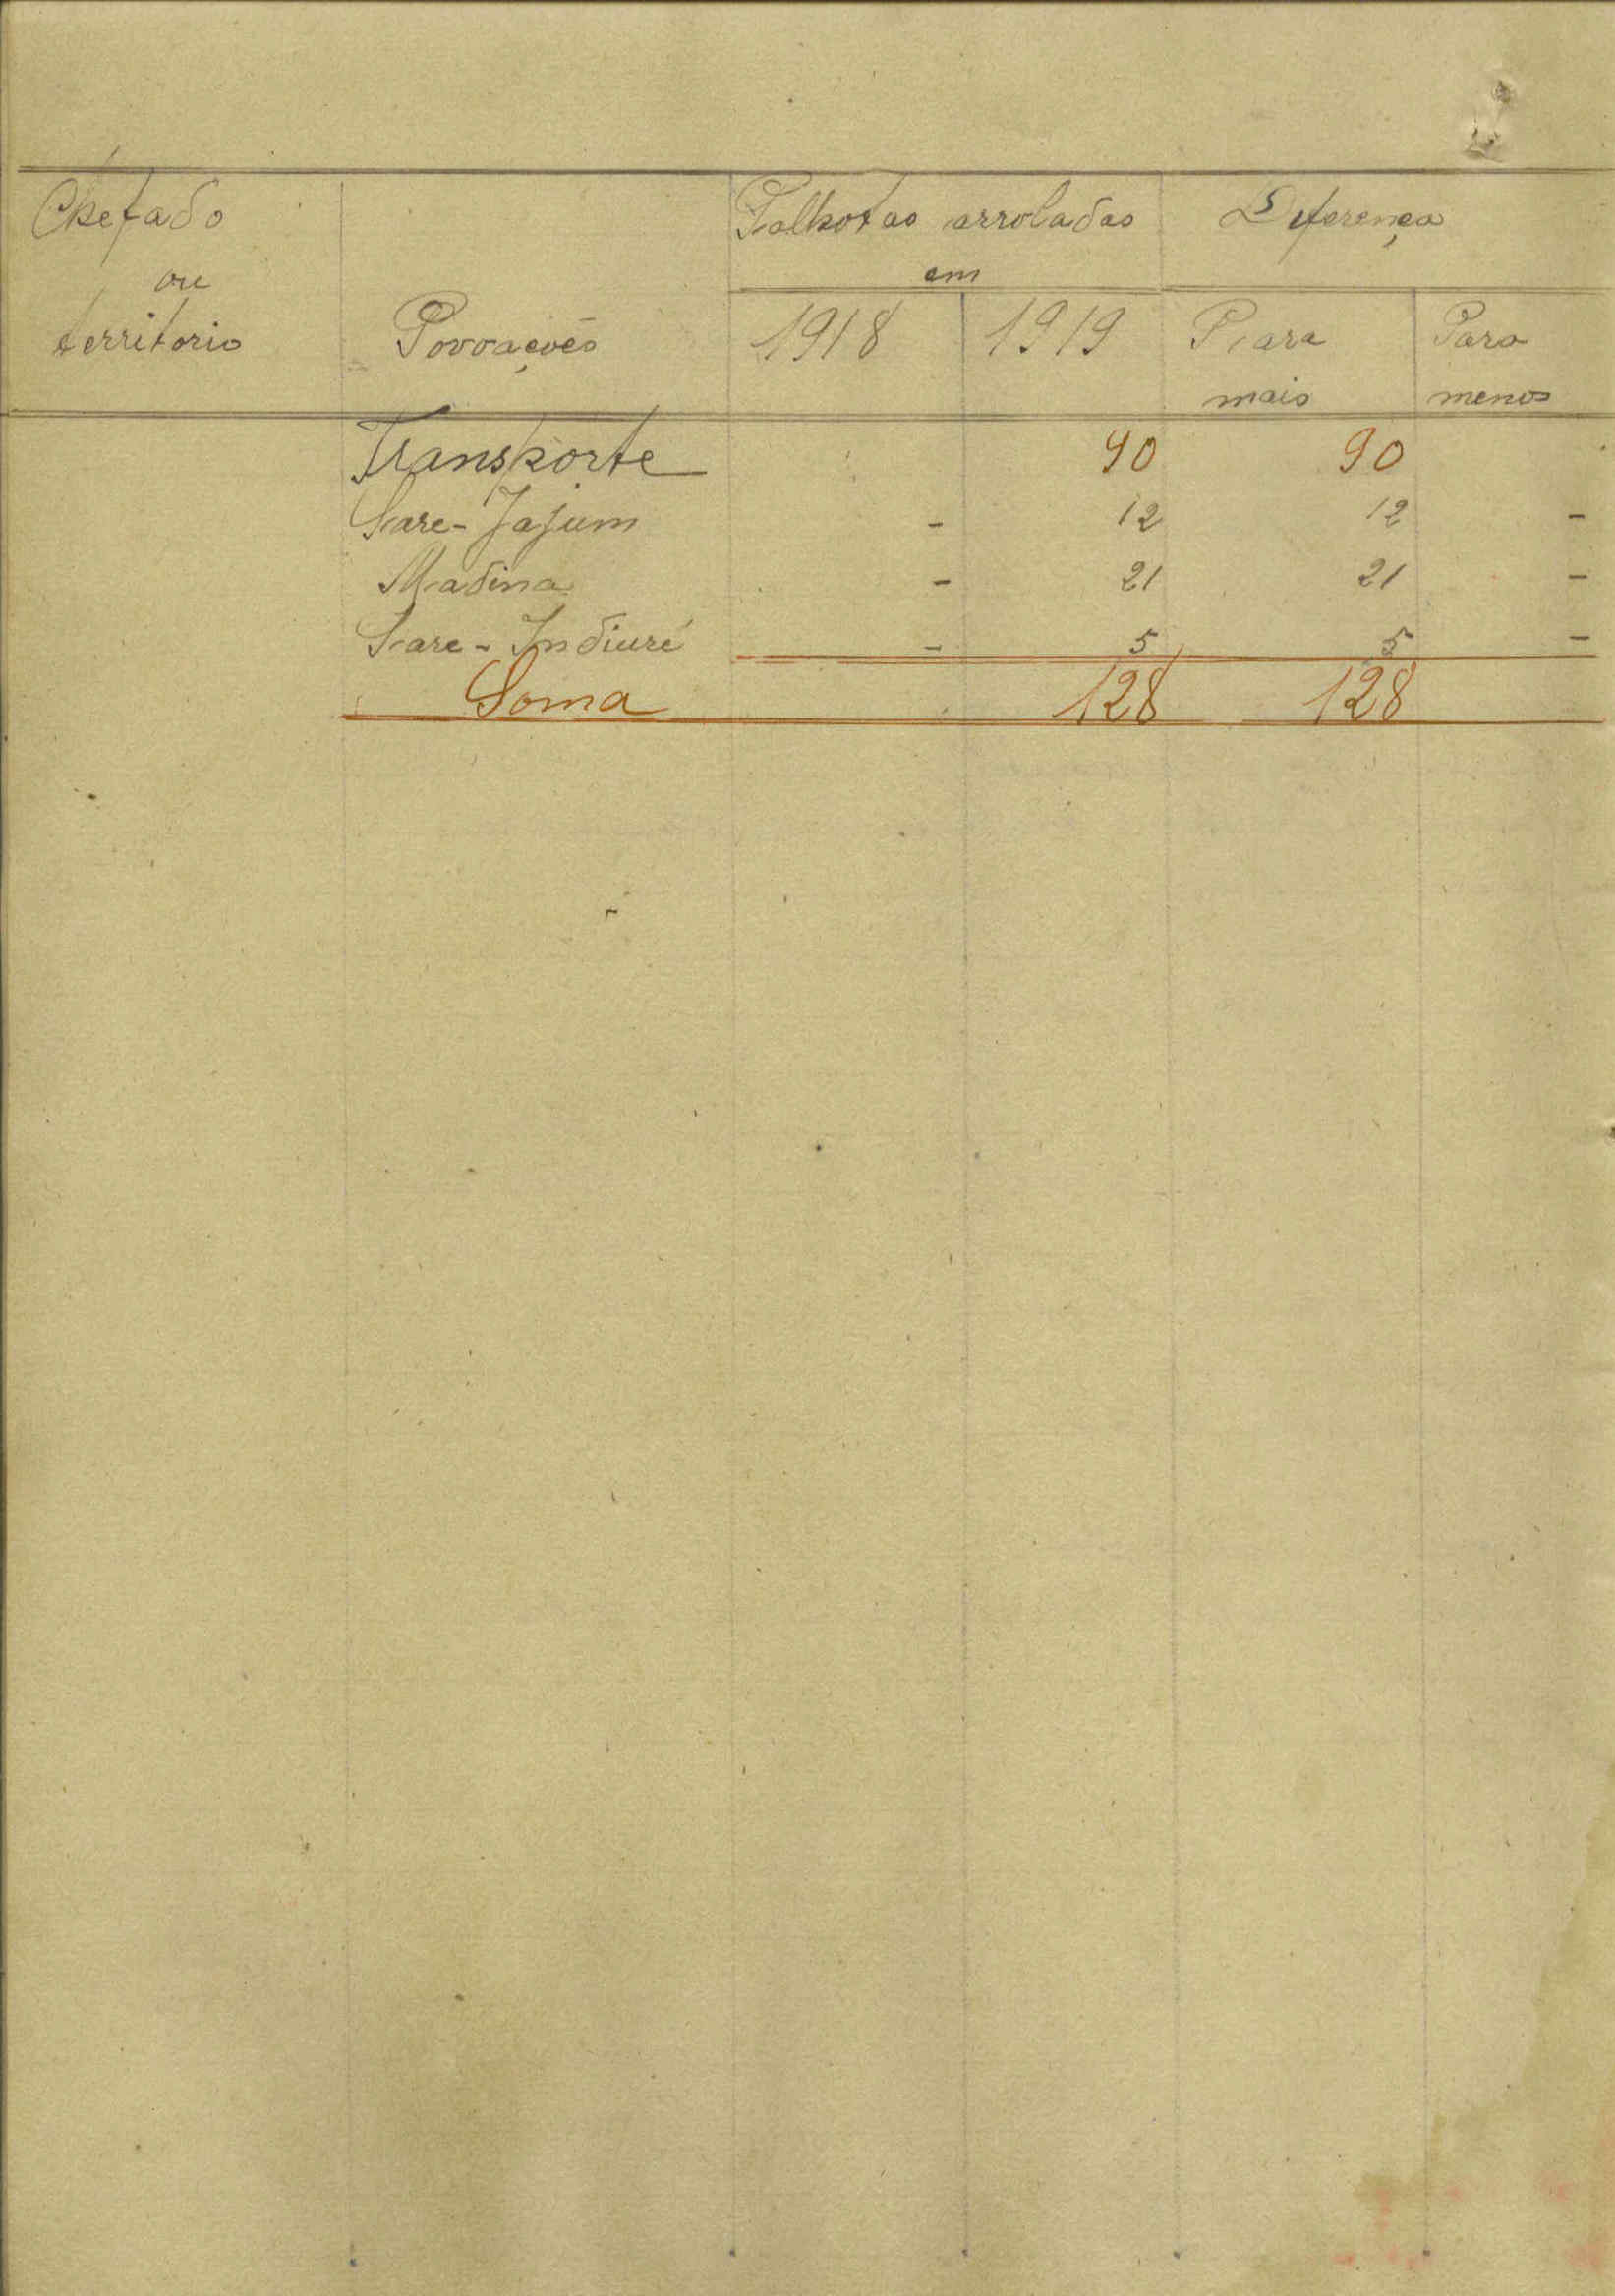 Chefado
ou
territorio
Povoações
Palhotas arroladas
em
1918 1919
Diferença
Para
mais
Para
menos
Transporte 90 90
Sare-Jajum - 12 12 -
Madina - 21 21 -
Sare-Indiuré - 5 5 -
Soma 128 128